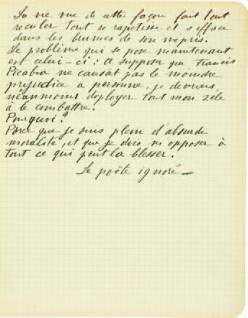 La vie vue de cette façon fait tout
reculer tout se rapetisse et s'efface
dans les brumes de son mépris.
Le problème qui se pose maintenant
est celui-ci : A supposer que Francis
Picabia ne causât pas le moindre
préjudice à personne, je devrais,
néanmoins déployer tout mon zèle
à le combattre.
Pourquoi ?
Parce que je suis plein d'absurde
moralité, et que je dois m'opposer à
tout ce qui peut la blesser.
Le poète ignoré —